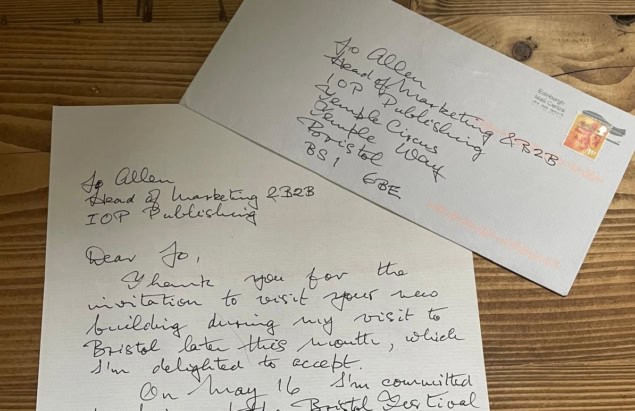 Jo Allen
Head of Marketing & B2B
IOP Publishing
Temple Circus
Temple Way
Bristol
BS1 6BE
Edinburgh
Mail Centre
Jo Allen
Head of Marketing & B2B
IOP Publishing
Dear Jo,
Thank you for the
invitation to visit your new
building during my visit to
Bristol later this month, which
I'm delighted to accept.
On May 16 I'm committed
Bristol Festival